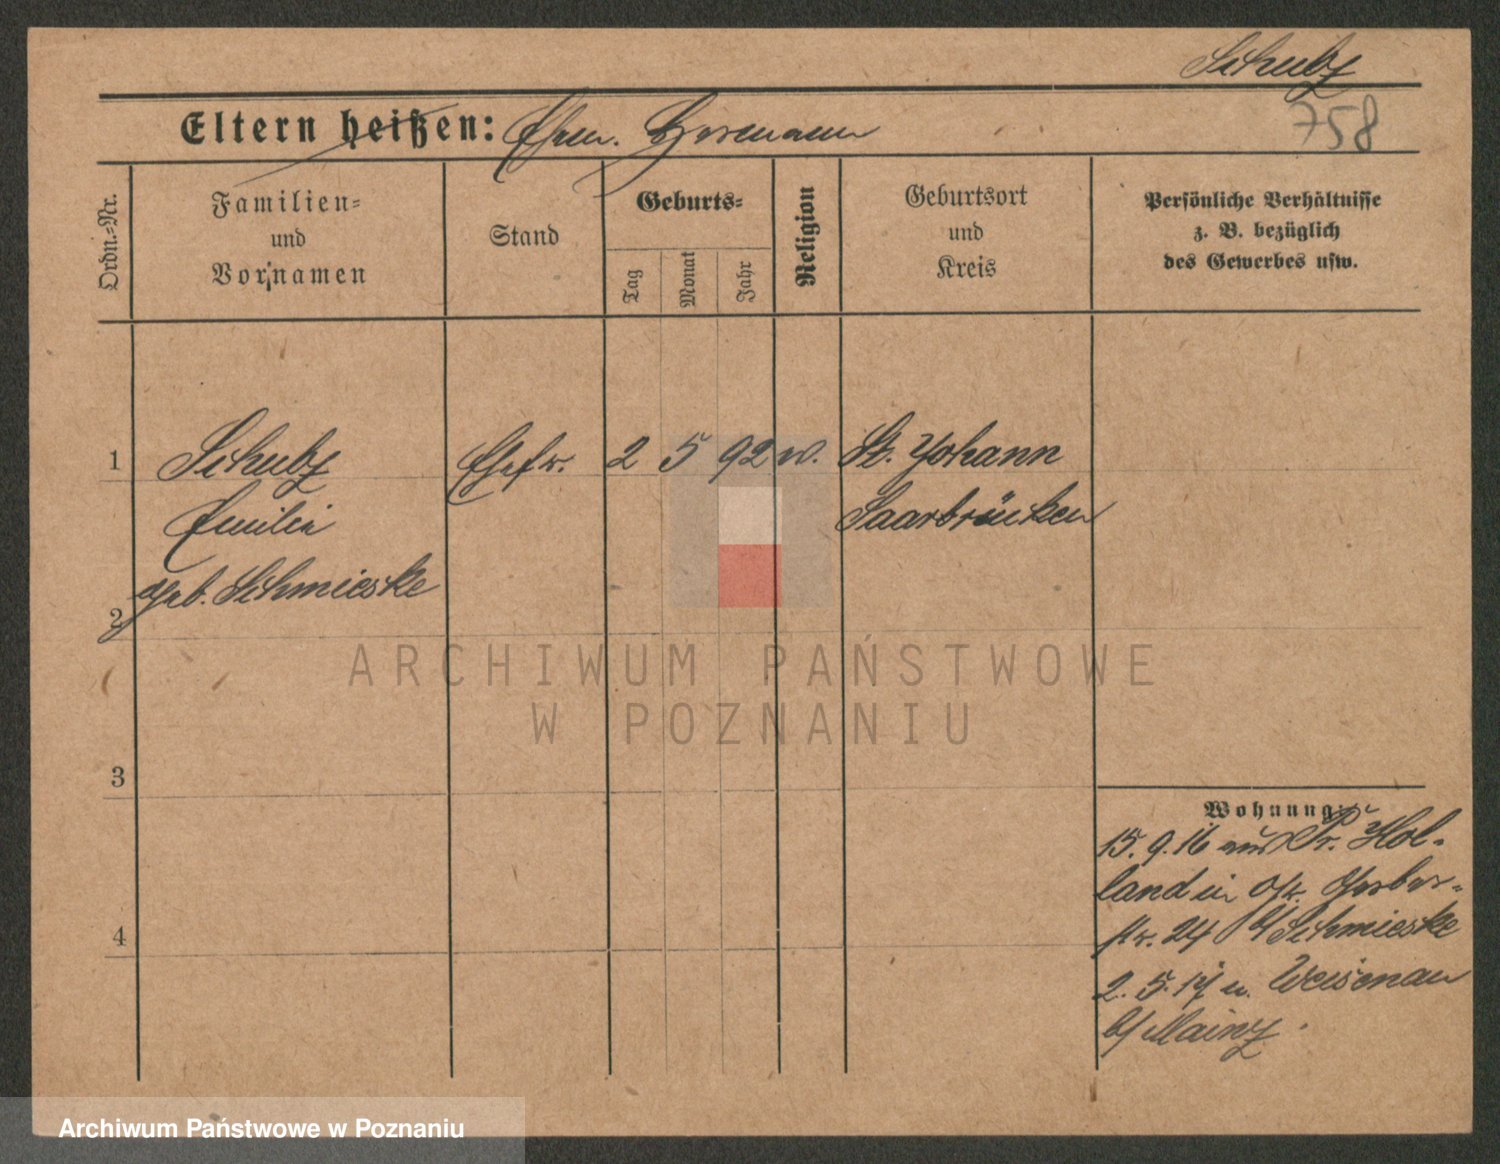 Schulz
758
Eltern heißen: Ehem. Hermann
Ordn.-Nr.
Familien=
und
Vornamen
Stand
Geburts=
Tag
Monat
Jahr
Religion
Geburtsort
und
Kreis
Persönliche Verhältnisse
z. B. bezüglich
des Gewerbes usw.
1
Schulz
Ehefr.
2 5 92
St. Johann
Emilie
Saarbrücken
geb. Schmieske
2
3
4
Wohnung:
15. 9. 16 aus Pr. Hol-
land in Gerber-
str. 24 b/ Schmieske
2. 5. 17 n. Weisenau
b/ Mainz.
ARCHIWUM PAŃSTWOWE
W POZNANIU
Archiwum Państwowe w Poznaniu